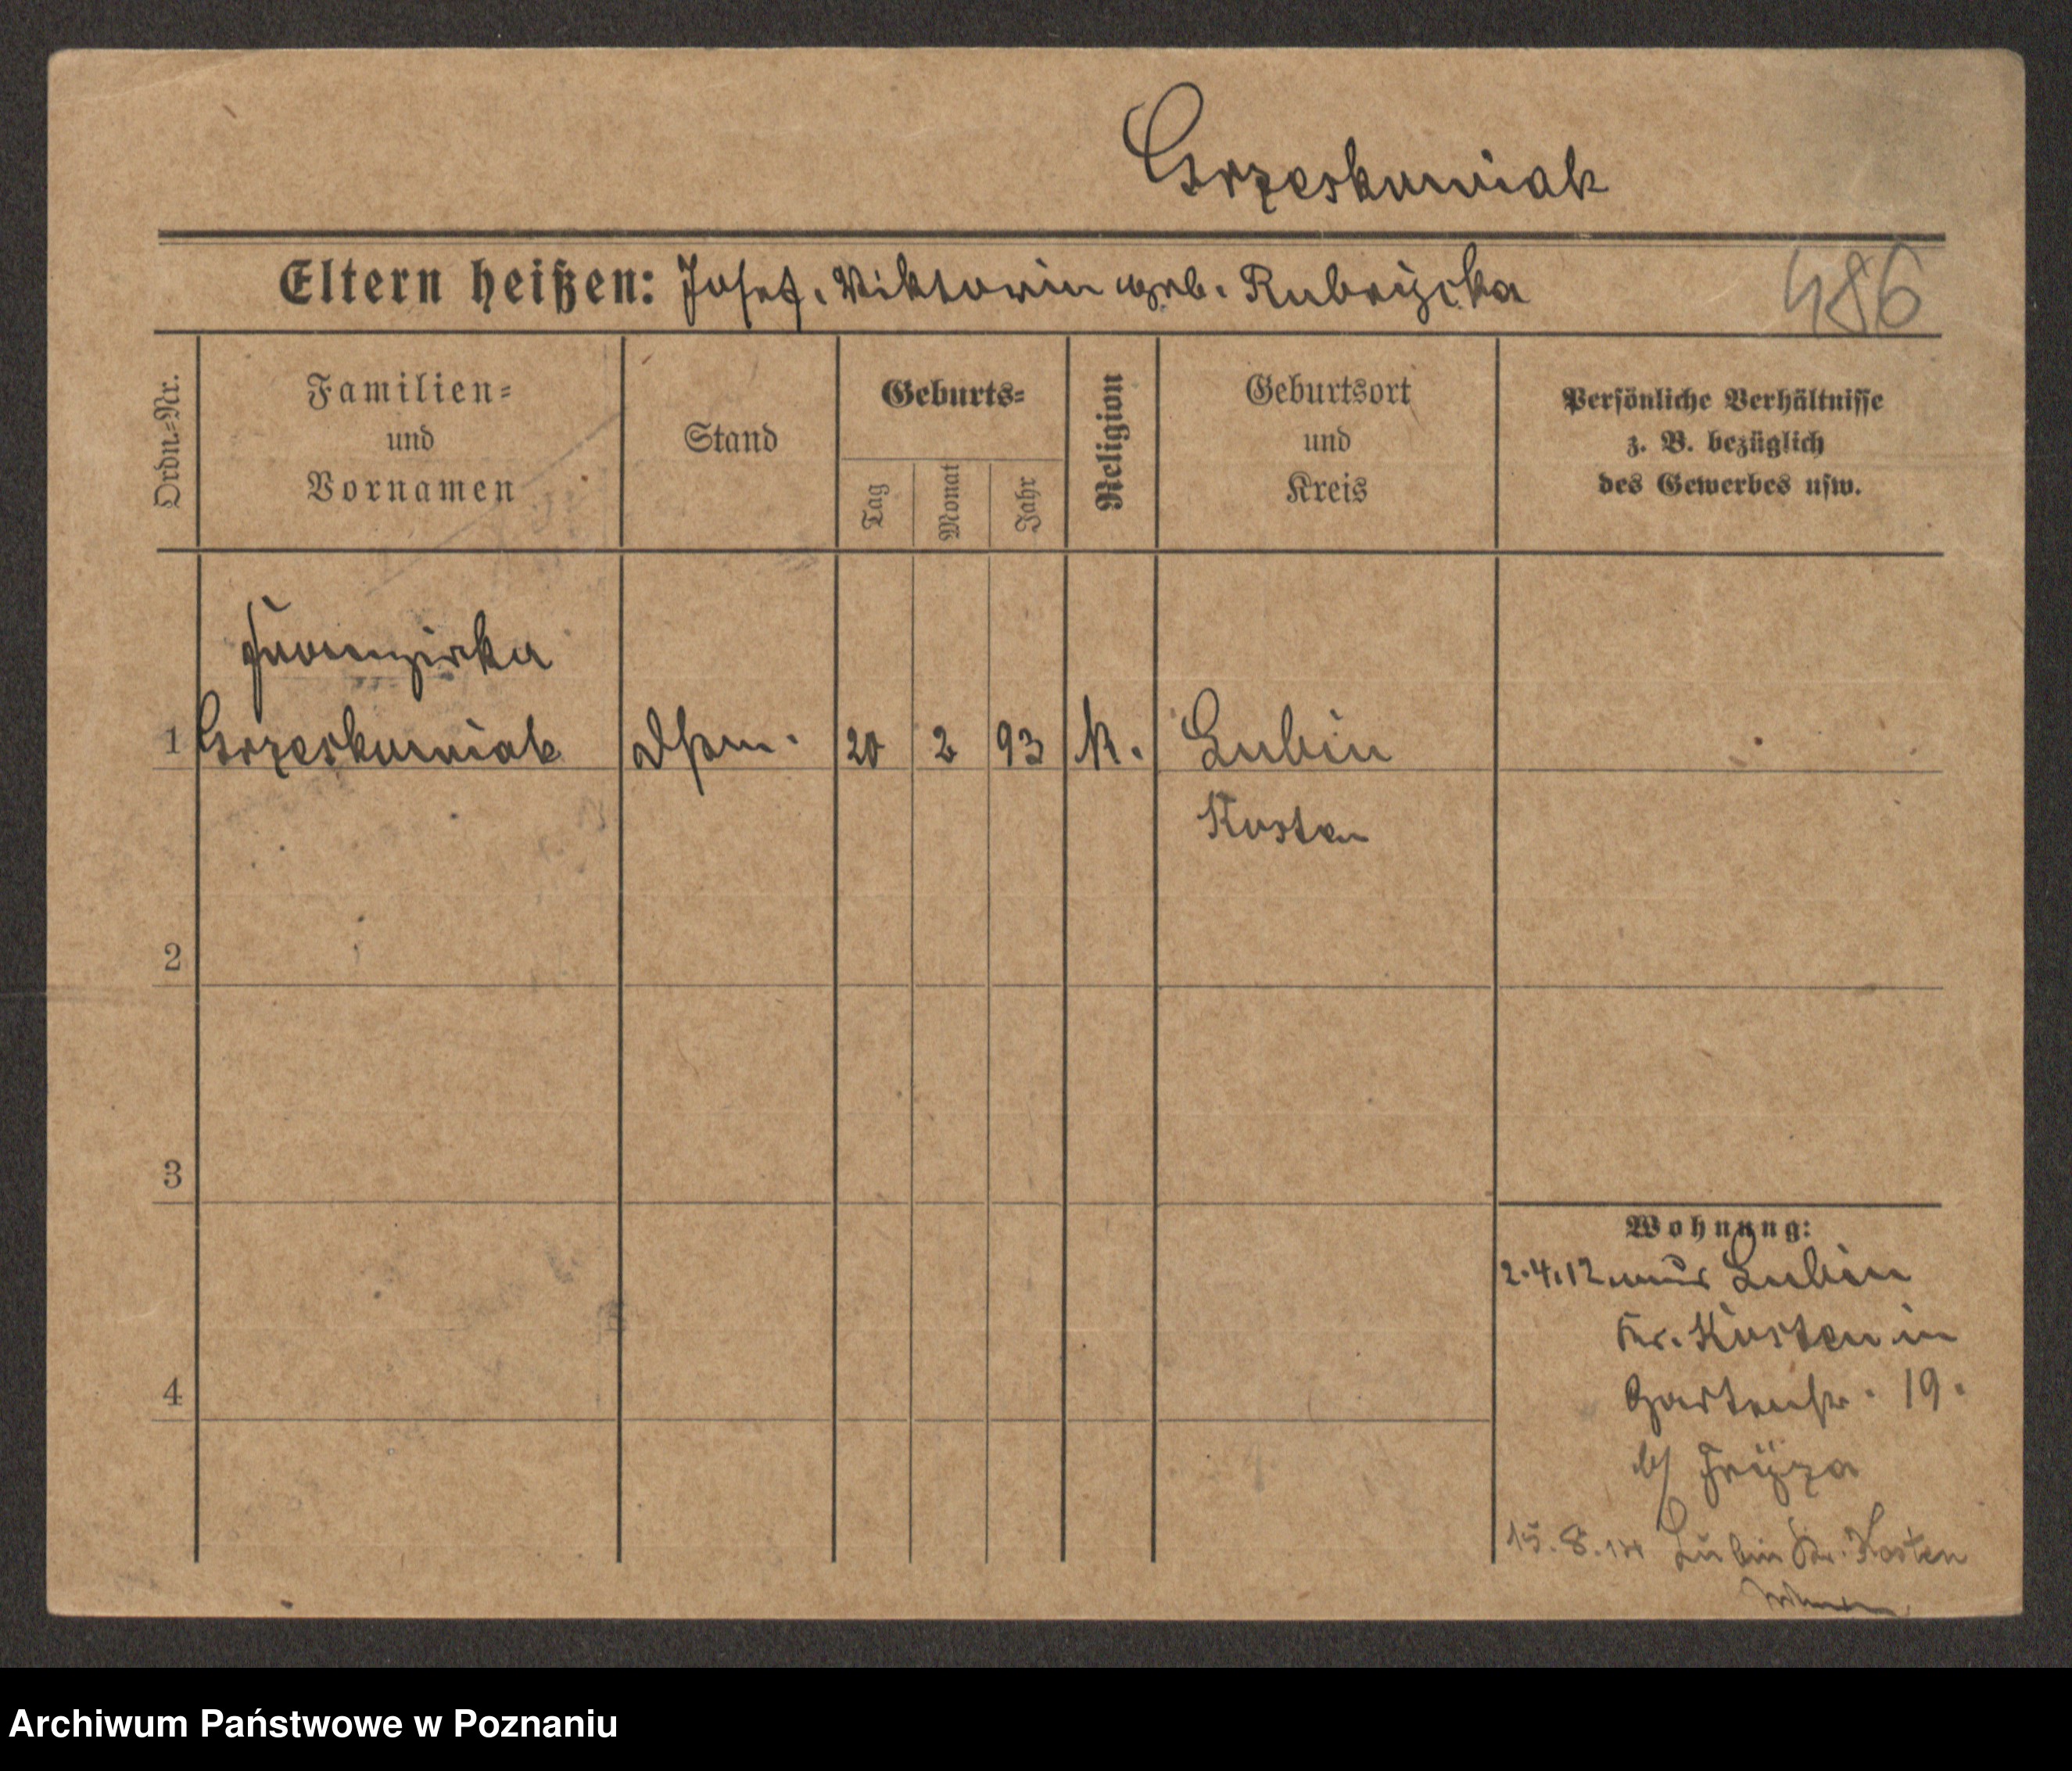 Grzeskowiak
Eltern heißen: Josef. Viktoria geb. Rubryicka
486
Ordn.-Nr.
Familien-
und
Vornamen
Stand
Geburts-
Tag
Monat
Jahr
Religion
Geburtsort
und
Kreis
Persönliche Verhältnisse
z. B. bezüglich
des Gewerbes usw.
Franziska
1 Grzeskowiak Dstm. 20 2 93 K. Lubin
Kosten
2
3
4
Wohnung:
2.4.12 aus Lubin
Kr. Kosten in
Gartenstr. 19.
b/
15.8.14 Lubin Kr. Kosten
Archiwum Państwowe w Poznaniu